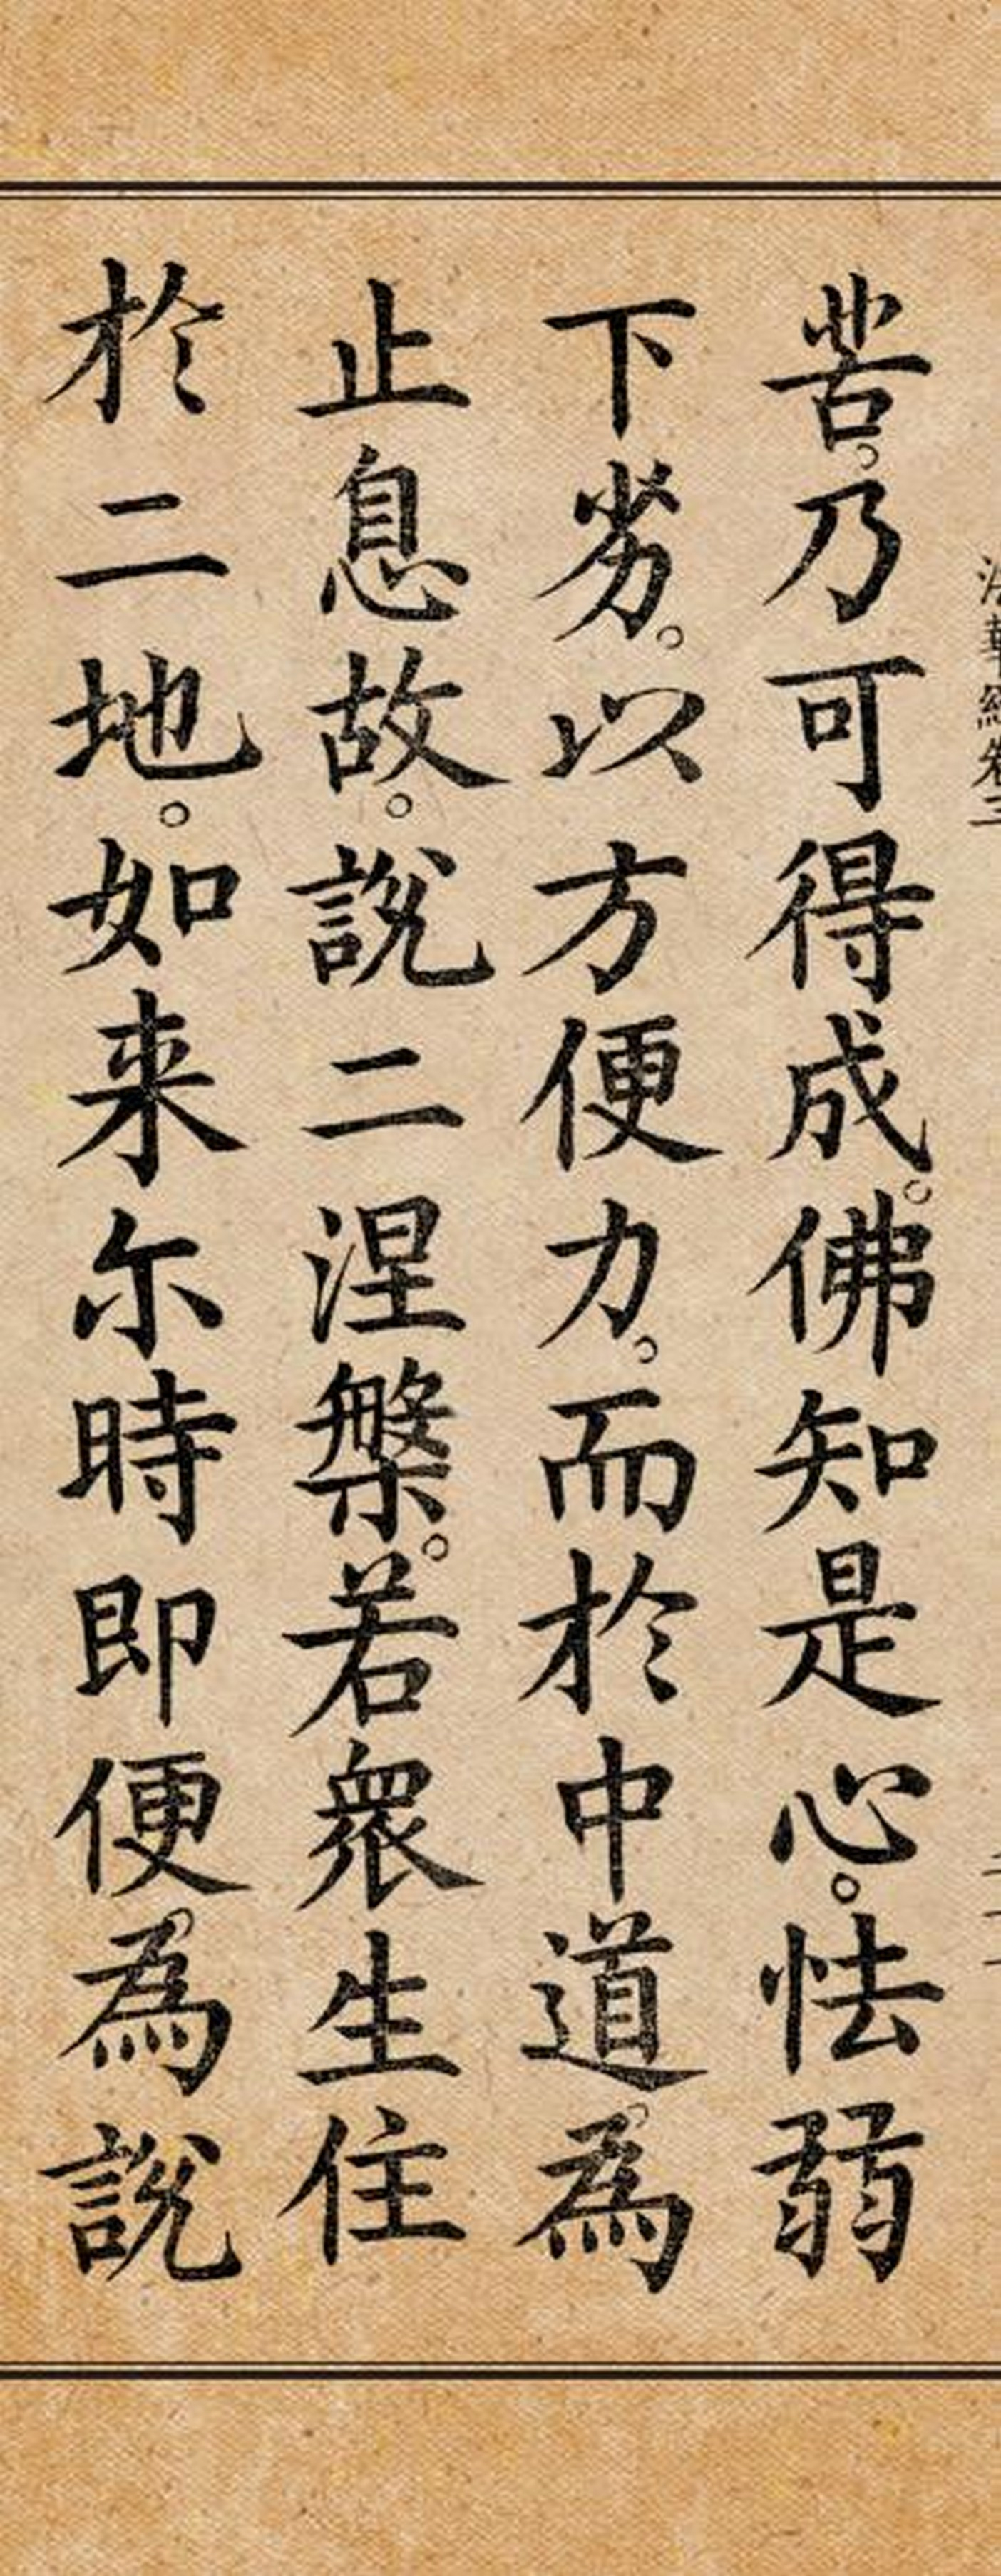 苦。乃可得成。佛知是心。怯弱
下劣。以方便力。而於中道。為
止息故。說二涅槃。若眾生住
於二地。如来尔時即便。為說
法華經卷三